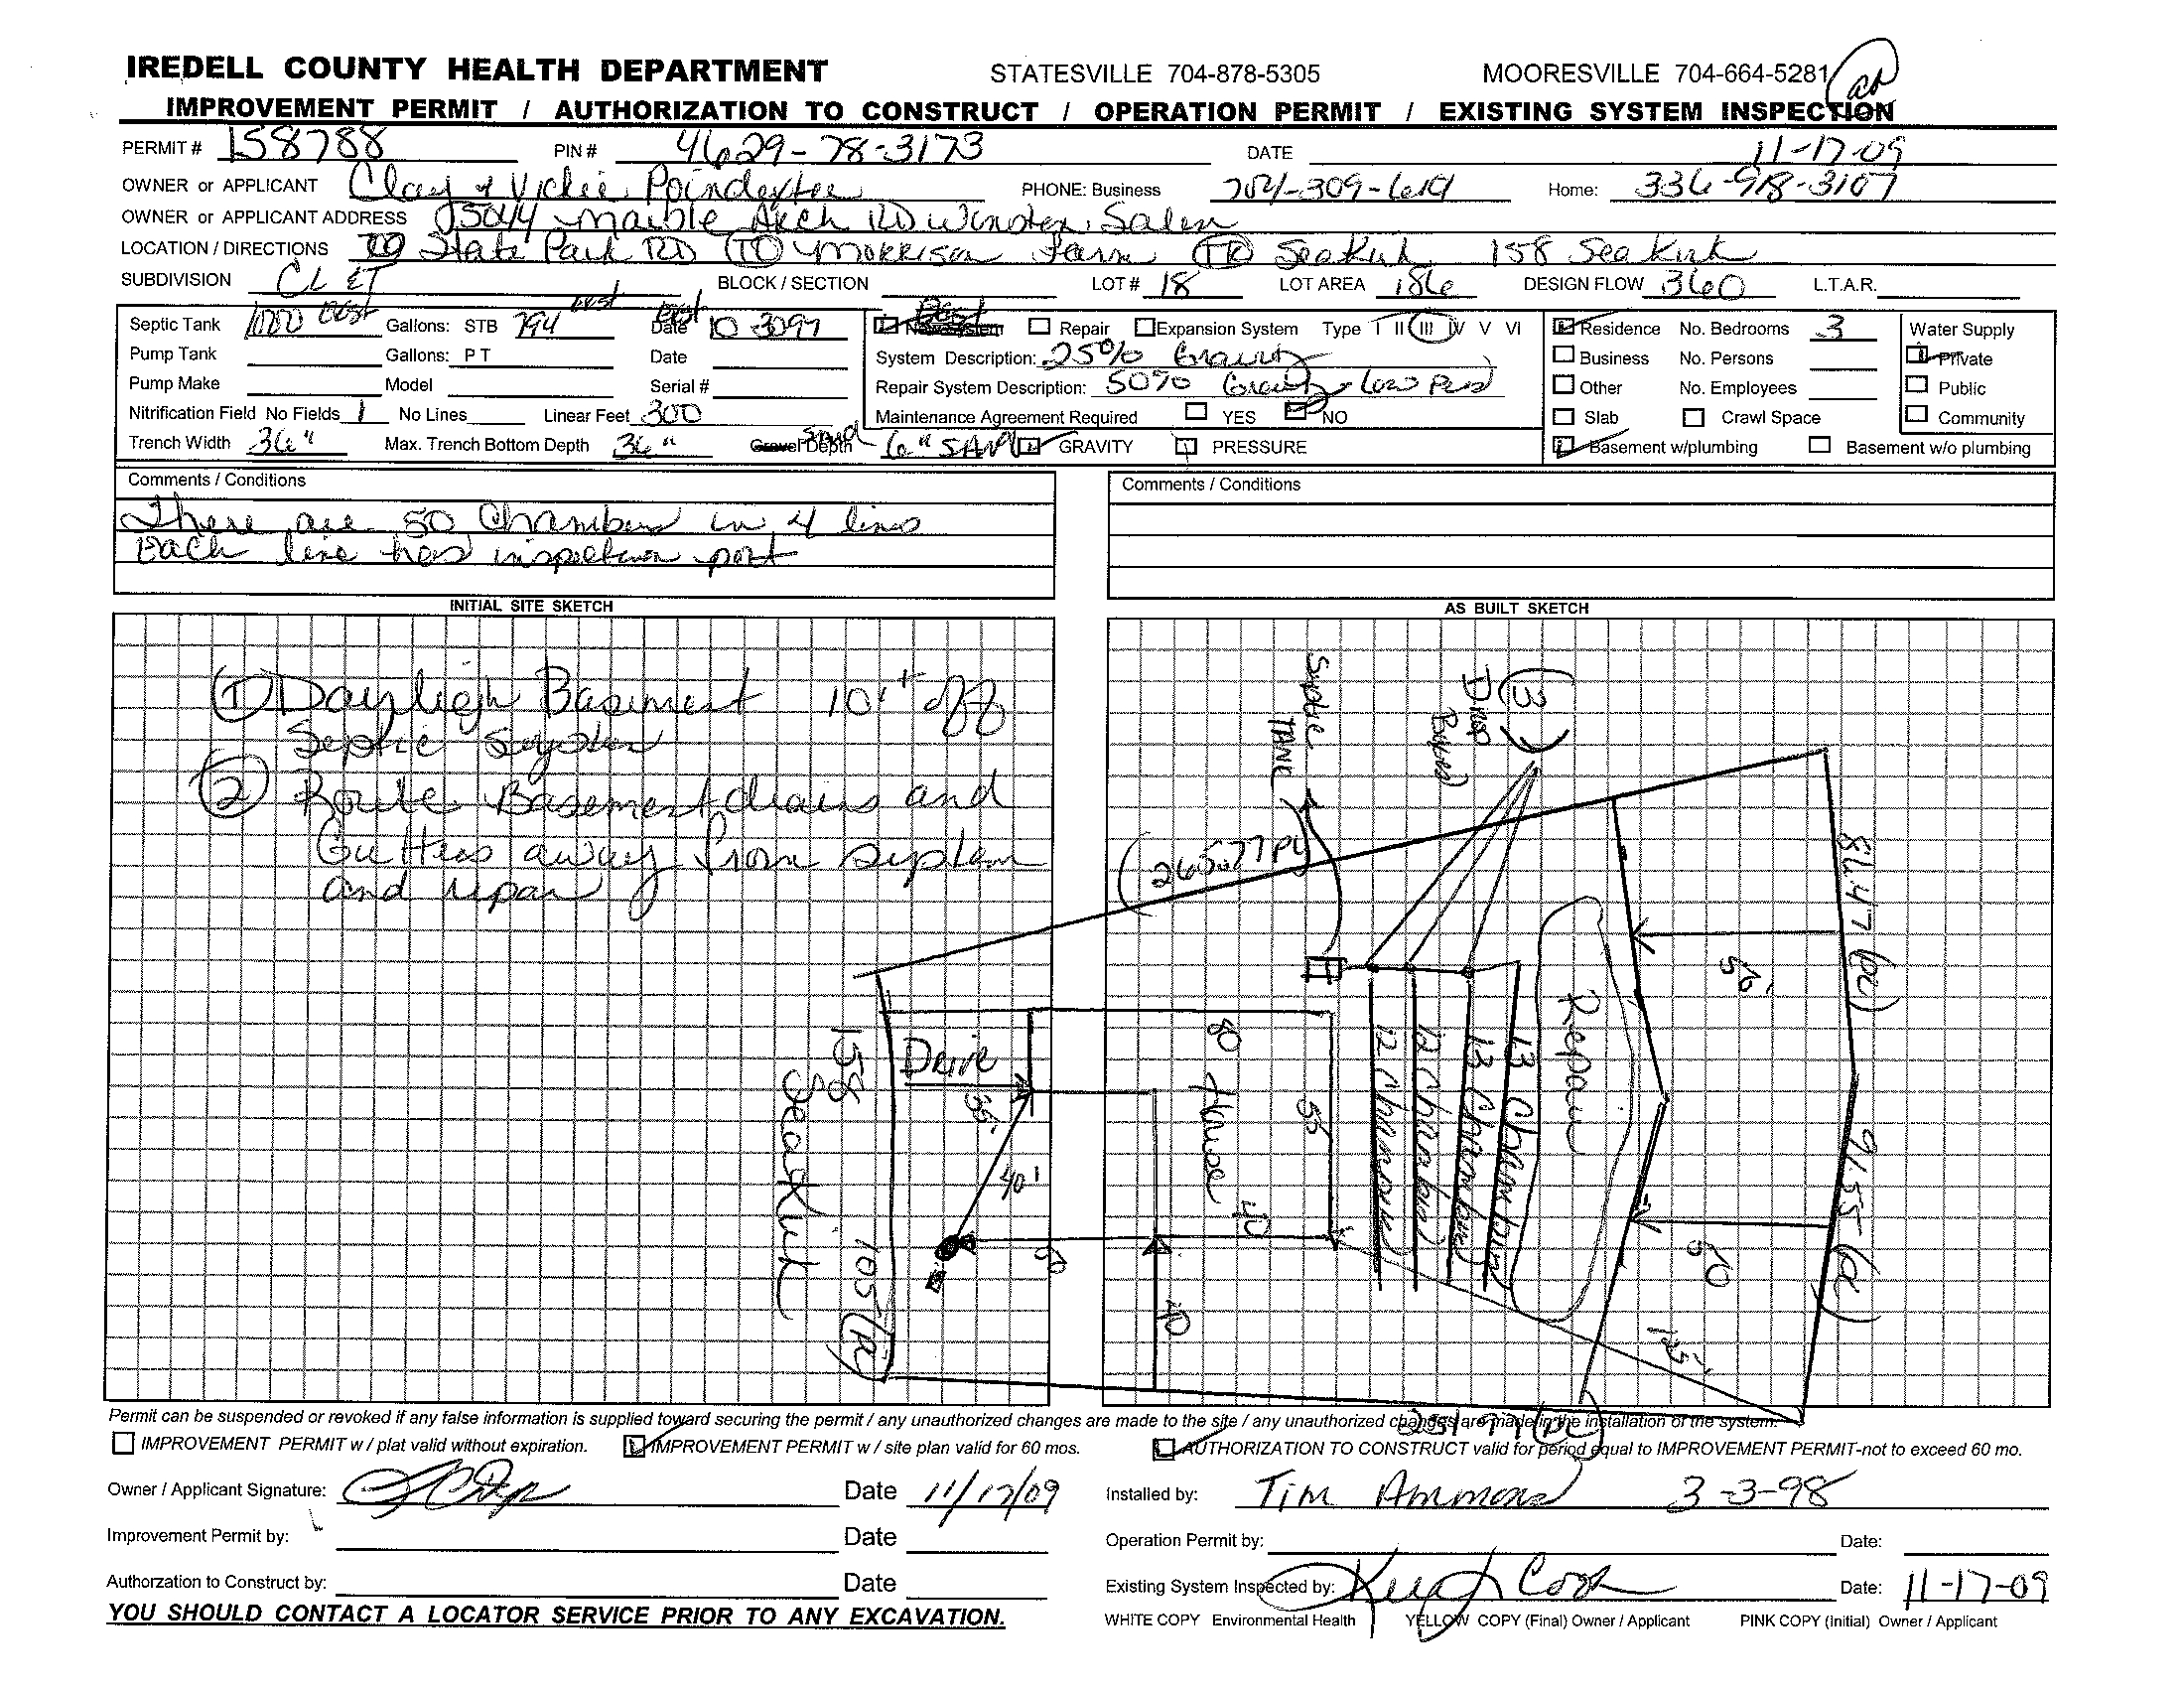 IREDELL COUNTY HEALTH DEPARTMENT STATESVILLE 704-878-5305 MOORESVILLE 704-664-5281
IMPROVEMENT PERMIT / AUTHORIZATION TO CONSTRUCT / OPERATION PERMIT / EXISTING SYSTEM INSPECTION
PERMIT # 158788 PIN # 4629-78-3173 DATE 11-17-09
OWNER or APPLICANT Clay & Vickie Poindexter PHONE: Business 704-309-6191 Home: 336-918-3107
OWNER or APPLICANT ADDRESS 5044 Marble Arch RD Winston Salem
LOCATION / DIRECTIONS State Park RD Morrison Farm Seakirk 158 Seakirk
SUBDIVISION BLOCK / SECTION LOT # 18 LOT AREA DESIGN FLOW 360 L.T.A.R.
Septic Tank 1000 Gallons: STB 794 Date 10-30-97 New System Repair Expansion System Type I II III IV V VI Residence No. Bedrooms 3 Water Supply
Pump Tank Gallons: P T Date System Description: 25% Gravity Business No. Persons Private
Pump Make Model Serial # Repair System Description: 50% Gravity Other No. Employees Public
Nitrification Field No Fields 1 No Lines Linear Feet 300 Maintenance Agreement Required YES NO Slab Crawl Space Community
Trench Width 36" Max. Trench Bottom Depth 36" Gravel Depth 6" GRAVITY PRESSURE Basement w/plumbing Basement w/o plumbing
Comments / Conditions Comments / Conditions
There are 50 Chambers in 4 lines
Each line has inspection port
INITIAL SITE SKETCH AS BUILT SKETCH
(1) Dayligh Basement 10'+ off
Septic System
(2) Route Basement drains and
Gutters away from system
and repair
Septic
TANK
(3)
Drop
Boxes
86.47 (pc)
50'
Repair
12 Chambers
12 Chambers
13 Chambers
13 Chambers
80
House
55
40
Drive
35'
40'
50
40
158
Seakirk
105 (pc)
91.55 (pc)
60
125'
Permit can be suspended or revoked if any false information is supplied toward securing the permit / any unauthorized changes are made to the site / any unauthorized changes are made in the installation of the system.
IMPROVEMENT PERMIT w / plat valid without expiration. IMPROVEMENT PERMIT w / site plan valid for 60 mos. AUTHORIZATION TO CONSTRUCT valid for period equal to IMPROVEMENT PERMIT-not to exceed 60 mo.
Owner / Applicant Signature: Date 11/17/09 Installed by: Tim Ammons 3-3-98
Improvement Permit by: Date Operation Permit by: Date:
Authorzation to Construct by: Date Existing System Inspected by: Cook Date: 11-17-09
YOU SHOULD CONTACT A LOCATOR SERVICE PRIOR TO ANY EXCAVATION. WHITE COPY Environmental Health YELLOW COPY (Final) Owner / Applicant PINK COPY (Initial) Owner / Applicant